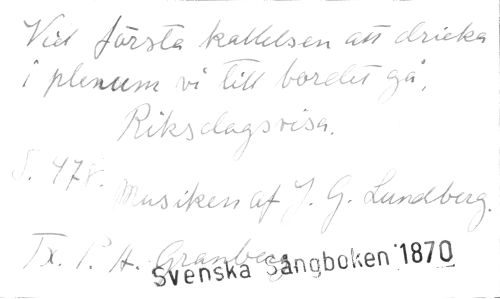 Vid första kallelsen att dricka
i plenum vi till bordet gå,
Riksdagsvisa.
S. 478.
Musiken af J. G. Lundberg.
Tx. P. A. Granberg
Svenska Sångboken 1870